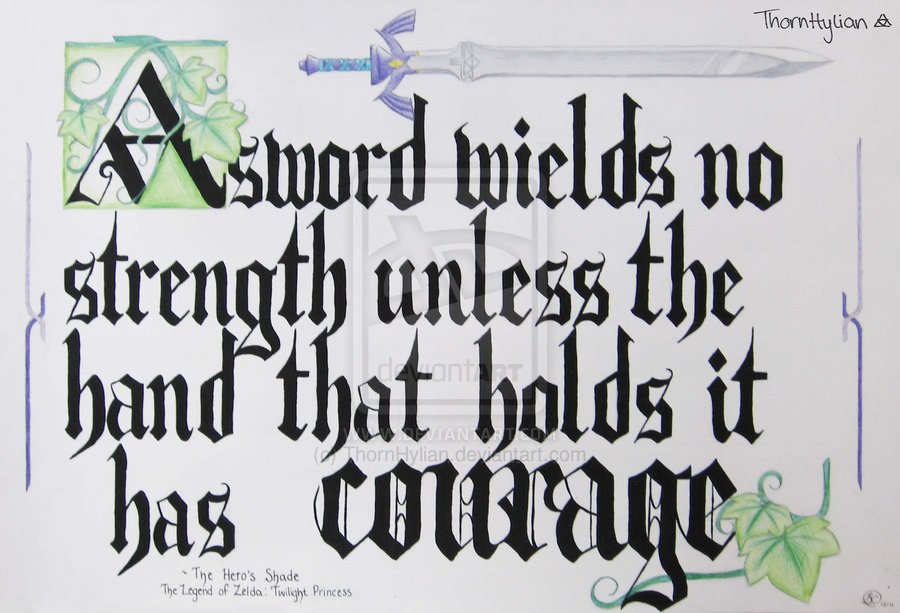 ThornHylian
A sword wields no
strength unless the
hand that holds it
has courage
~ The Hero's Shade
The Legend of Zelda: Twilight Princess
deviantART
WWW.DEVIANTART.COM
(c) ThornHylian.deviantart.com